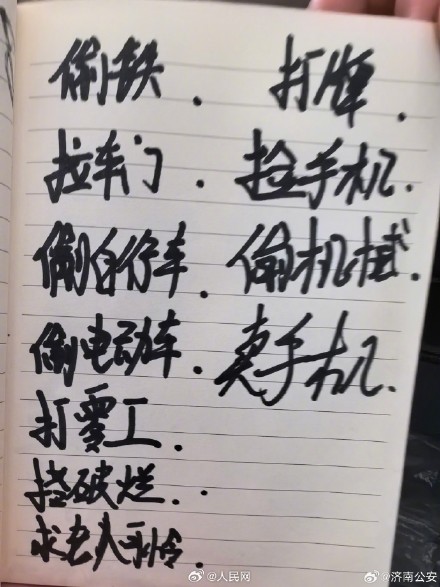 偷铁. 打牌.
拉车门. 捡手机.
偷自行车. 偷机械.
偷电动车. 卖手机.
打零工.
捡破烂.
求老人可怜.
@人民网 @济南公安